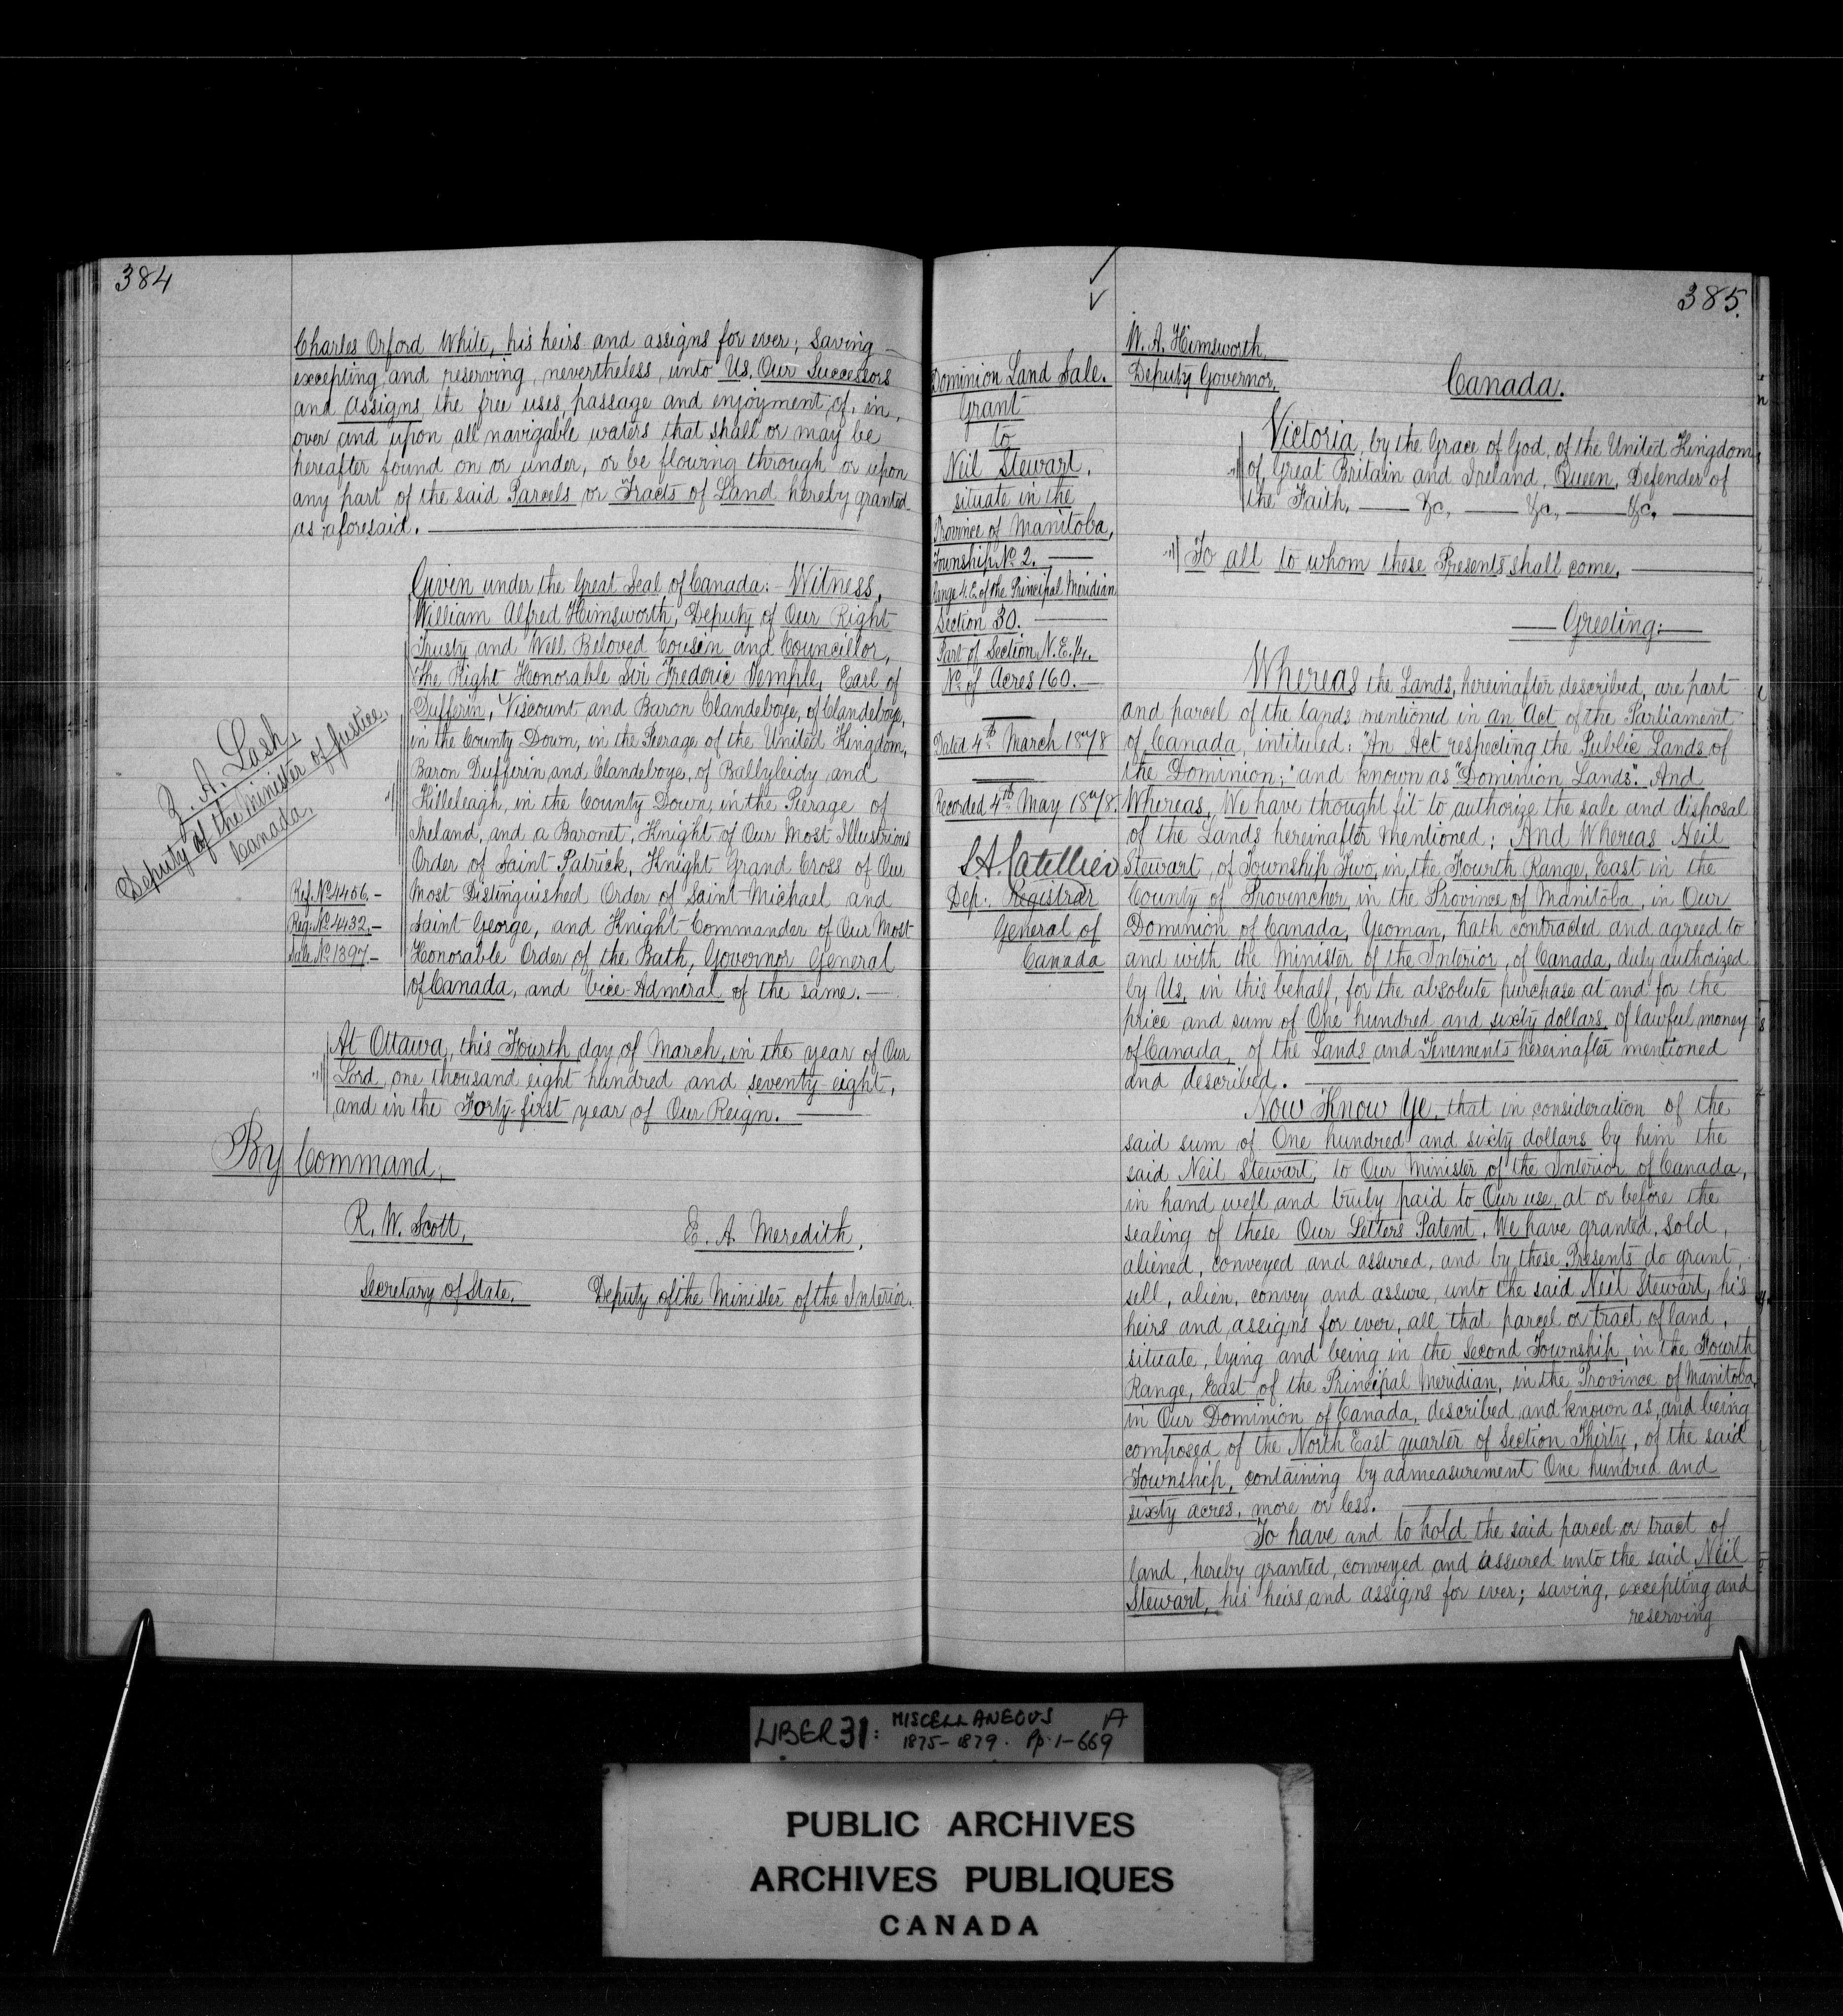 384
Charles Orford White, his heirs and assigns for ever; saving
excepting and reserving, nevertheless, unto Us, Our Successors
and Assigns the free uses, passage and enjoyment of, in,
over and upon all navigable waters that shall or may be
hereafter found on or under, or be flowing through or upon
any part of the said Parcels or Tracts of Land hereby granted
as aforesaid.
Given under the Great Seal of Canada: - Witness,
William Alfred Himsworth, Deputy of Our Right
Trusty and Well Beloved Cousin and Councillor,
The Right Honorable Sir Frederic Temple, Earl of
Dufferin, Viscount and Baron Clandeboye, of Clandeboye,
in the County Down, in the Peerage of the United Kingdom,
Baron Dufferin and Clandeboye, of Ballyleidy and
Killeleagh, in the County Down, in the Peerage of
Ireland, and a Baronet, Knight of Our Most Illustrious
Order of Saint Patrick, Knight Grand Cross of Our
Most Distinguished Order of Saint Michael and
Saint George, and Knight Commander of Our Most
Honorable Order of the Bath, Governor General
of Canada, and Vice-Admiral of the same. —
Z. A. Lash,
Deputy of the Minister of Justice,
Canada.
Ref. No 4456. -
Reg. No 4432. -
Sale No 1397. -
At Ottawa, this Fourth day of March, in the year of Our
Lord, one thousand eight hundred and seventy-eight,
and in the Forty-first year of Our Reign. —
By Command,
R. W. Scott,
E. A. Meredith,
Secretary of State.
Deputy of the Minister of the Interior.
385.
W. A. Himsworth,
Deputy Governor.
Canada.
Dominion Land Sale.
Grant
to
Neil Stewart,
situate in the
Province of Manitoba,
Township No 2. —
Range 4. E. of the Principal Meridian
Section 30. —
Part of Section, N. E. 1/4.
No of Acres 160. —
Dated 4th March 1878
Recorded 4th May 1878.
S. A. Catellier
Dep. Registrar
General of
Canada
Victoria, by the Grace of God, of the United Kingdom
of Great Britain and Ireland, Queen, Defender of
the Faith, — &c, — &c, — &c, —
To all to whom these Presents shall come, —
— Greeting: —
Whereas the Lands, hereinafter described, are part
and parcel of the lands mentioned in an Act of the Parliament
of Canada, intituled: "An Act respecting the Public Lands of
the Dominion;" and known as "Dominion Lands". And
Whereas, We have thought fit to authorize the sale and disposal
of the Lands hereinafter mentioned; And Whereas Neil
Stewart, of Township Two, in the Fourth Range, East in the
County of Provencher, in the Province of Manitoba, in Our
Dominion of Canada, Yeoman, hath contracted and agreed to
and with the Minister of the Interior, of Canada, duly authorized
by Us, in this behalf, for the absolute purchase at and for the
price and sum of One hundred and sixty dollars, of lawful money
of Canada, of the Lands and Tenements hereinafter mentioned
and described. —
Now Know Ye, that in consideration of the
said sum of One hundred and sixty dollars by him the
said Neil Stewart, to Our Minister of the Interior of Canada,
in hand well and truly paid to Our use, at or before the
sealing of these Our Letters Patent, We have granted, sold,
aliened, conveyed and assured, and by these Presents do grant,
sell, alien, convey and assure, unto the said Neil Stewart, his
heirs and assigns for ever, all that parcel or tract of land,
situate, lying and being in the Second Township, in the Fourth
Range, East of the Principal Meridian, in the Province of Manitoba,
in Our Dominion of Canada, described and known as, and being
composed of the North East quarter of Section Thirty, of the said
Township, containing by admeasurement One hundred and
sixty acres, more or less. —
To have and to hold the said parcel or tract of
land, hereby granted, conveyed and assured unto the said Neil
Stewart, his heirs and assigns for ever; saving, excepting and
reserving
LIBER 31: MISCELLANEOUS A
1875-1879. Pp. 1-669
PUBLIC ARCHIVES
ARCHIVES PUBLIQUES
CANADA